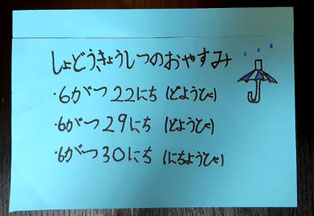 しょどうきょうしつのおやすみ
・6がつ22にち(どようび)
・6がつ29にち(どようび)
・6がつ30にち(にちようび)